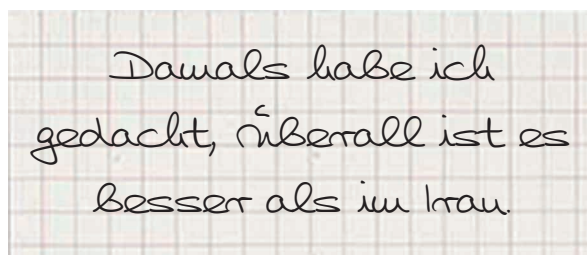 Damals habe ich
gedacht, überall ist es
besser als im Iran.